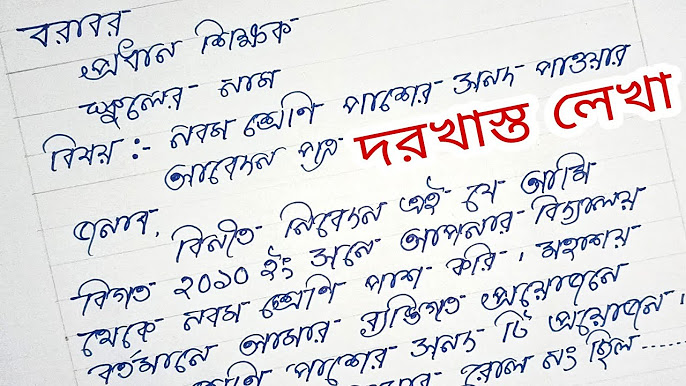 বরাবর
প্রধান শিক্ষক
স্কুলের নাম
বিষয় :- নবম শ্রেণি পাশের সনদ পাওয়ার
আবেদন পত্র
দরখাস্ত লেখা
জনাব,
বিনীত নিবেদন এই যে আমি
বিগত ২০১০ ইং সনে আপনার বিদ্যালয়
থেকে নবম শ্রেণি পাশ করি। মহাশয়
বর্তমানে আমার ব্যক্তিগত প্রয়োজনে
শ্রেণি পাশের সনদ টি প্রয়োজন।
রোল নং ছিল......